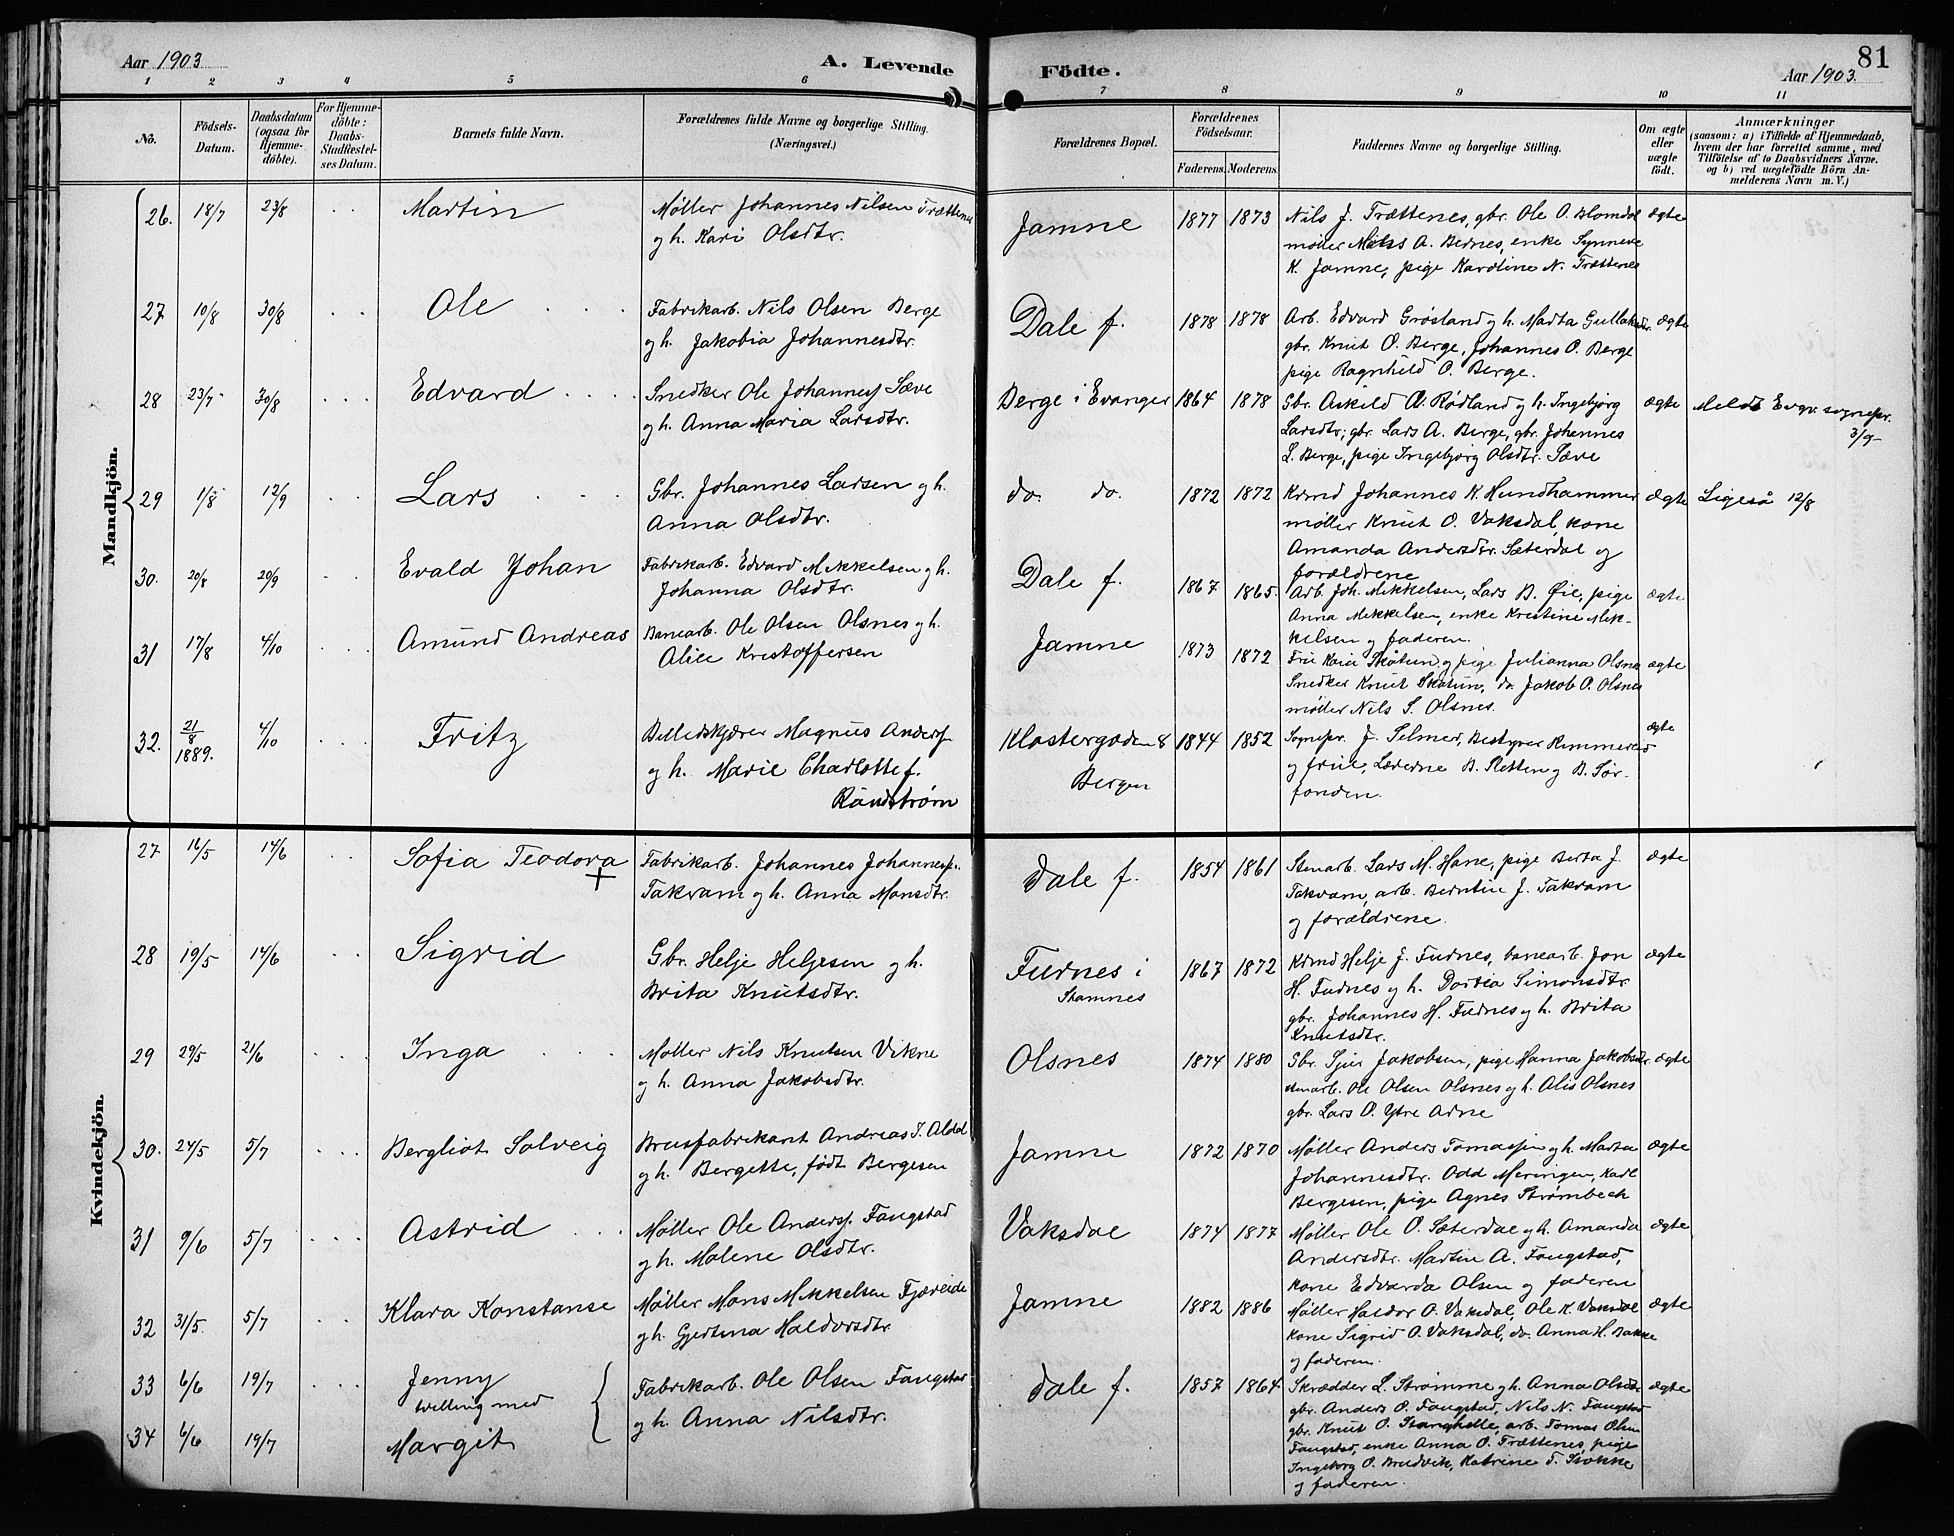 81
Aar 1903
A. Levende
Födte.
Aar 1903.
1 2 3 4 5 6 7 8 9 10 11
No.
Födsels-
Datum.
Daabsdatum
(ogsaa for
Hjemme-
döbte).
For Hjemme-
döbte:
Daabs-
Stadfæstel-
ses Datum.
Barnets fulde Navn.
Forældrenes fulde Navne og borgerlige Stilling.
(Næringsvei.)
Forældrenes Bopæl.
Forældrenes
Födselsaar.
Faderens. Moderens.
Faddernes Navne og borgerlige Stilling.
Om ægte
eller
uægte
födt.
Anmærkninger
(saasom: a) i Tilfælde af Hjemmedaab,
hvem der har forrettet samme, med
Tilföielse af to Daabsvidners Navne.
og b) ved uægtefödte Börn An-
melderens Navn m. V.)
Mandkjön.
26. 18/7 23/8 Martin
Møller Johannes Nilsen Trættenes
og h. Kari Olsdtr.
Jamne 1877 1873
Nils J. Trættenes, gbr. Ole O. Blomdal
møller Nils A. Bernes, enke Synneve
K. Jamne, pige Karoline N. Trættenes
ægte
27 10/8 30/8 Ole
Fabrikarb. Nils Olsen Berge
og h. Jakobia Johannesdtr.
Dale f. 1878 1878
Arb. Edvard Grøsland og h. Marta Gullaksdtr.
gbr. Knut O. Berge, Johannes O. Berge
pige Ragnhild O. Berge.
ægte
28 23/7 30/8 Edvard
Snedker Ole Johannes Sæve
og h. Anna Maria Larsdtr.
Berge i Evanger 1864 1878
Gbr. Askild A. Rødland og h. Ingebjørg
Larsdtr; gbr. Lars A. Berge, gbr. Johannes
L. Berge, pige Ingebjørg Olsdtr. Sæve
ægte
Meldt Evgr. sognepr.
3/9
29 1/8 12/9 Lars
Gbr. Johannes Larsen og h.
Anna Olsdtr.
do. do. 1872 1872
Krmd Johannes K. Hundhammer
møller Knut O. Vaksdal, kone
Amanda Andersdtr. Sæterdal og
forældrene
ægte
Ligeså 12/8
30. 20/8 20/9 Evald Johan
Fabrikarb. Edvard Mikkelsen og h.
Johanna Olsdtr.
Dale f. 1867 1865.
Arb. Joh. Mikkelsen, Lars B. Øie, pige
Anna Mikkelsen, enke Kristine Mik-
kelsen og faderen.
ægte
31 17/8 4/10 Amund Andreas
Banearb. Ole Olsen Olsnes og h.
Alice Kristoffersen
Jamne 1873 1872
Fru Kari Skåtun og pige Julianna Olsnes
Snedker Knut Skåtun, do Jakob O. Olsnes
møller Nils S. Olsnes.
ægte
32. 21/8 1889. 4/10 Fritz
Billedskjærer Magnus Anders
og h. Marie Charlotte f.
Randstrøm
Klostergaden 8
Bergen
1844 1852
Sognepr. J. Selmer, Bestyrer Rimmereid
og frue, Lærerne B. Sletten og B. Sør-
fonden.
ægte
Kvindekjön.
27 16/5 14/6 Sofia Teodora +
Fabrikarb. Johannes Johanness.
Takvam og h. Anna Monsdtr.
Dale f. 1854 1861
Stenarb. Lars M. Hane, pige Berta J.
Takvam, arb. Berntin J. Takvam
og forældrene.
ægte
28 19/5 14/6 Sigrid
Gbr. Helje Heljesen og h.
Brita Knutsdtr.
Furnes i
Stamnes
1867 1872
Krmd Helje J. Furnes, banearb. Jon
H. Furnes og h. Dortea Simonsdtr
gbr. Johannes H. Furnes og h. Brita
Knutsdtr.
ægte
29 29/5 21/6 Inga
Møller Nils Knutsen Vikne
og h. Anna Jakobsdtr.
Olsnes 1874 1880
Gbr. Sjur Jakobsen, pige Hanna Jakobsdtr.
stenarb. Ole Olsen Olsnes og h. Alis Olsnes
gbr. Lars O. Ytre Arne
ægte
30. 24/5 5/7 Bergliot Solveig
Brusfabrikant Andreas T. Odd
og h. Bergette, født Bergesen
Jamne 1872 1870
Møller Anders Tomassen og h. Marta
Johannesdtr. Odd Meringen, Karl
Bergesen, pige Agnes Strømbeck
ægte
31 9/6 5/7 Astrid
Møller Ole Anderss. Fangstad
og h. Malene Olsdtr.
Vaksdal 1874 1877
Møller Ole O. Sæterdal og h. Amanda
Andersdtr. Martin A. Fangstad,
kone Edvarda Olsen og faderen
ægte
32 31/5. 5/7 Klara Konstanse
Møller Mons Mikkelsen Fjæreide
og h. Gjertina Haldorsdtr
Jamne 1882 1886
Møller Haldor O. Vaksdal, Ole K. Vaksdal
kone Sigrid O. Vaksdal, do. Anna H. Bakke
og faderen.
ægte
33 6/6 19/7 Jenny
tvilling med
34 6/6 19/7 Margit
Fabrikarb. Ole Olsen Fangstad
og h. Anna Nilsdtr.
Dale f. 1857 1864
Skrædder L. Strømme og h. Anna Olsdtr
gbr. Anders O. Fangstad, Nils N. Fangstad
gbr. Knut O. Stanghelle, arb. Tomas Olsen
Fangstad, enke Anna O. Trættenes, pige
Ingeborg O. Brudvik, Katrine T. Stokke
og faderen.
ægte